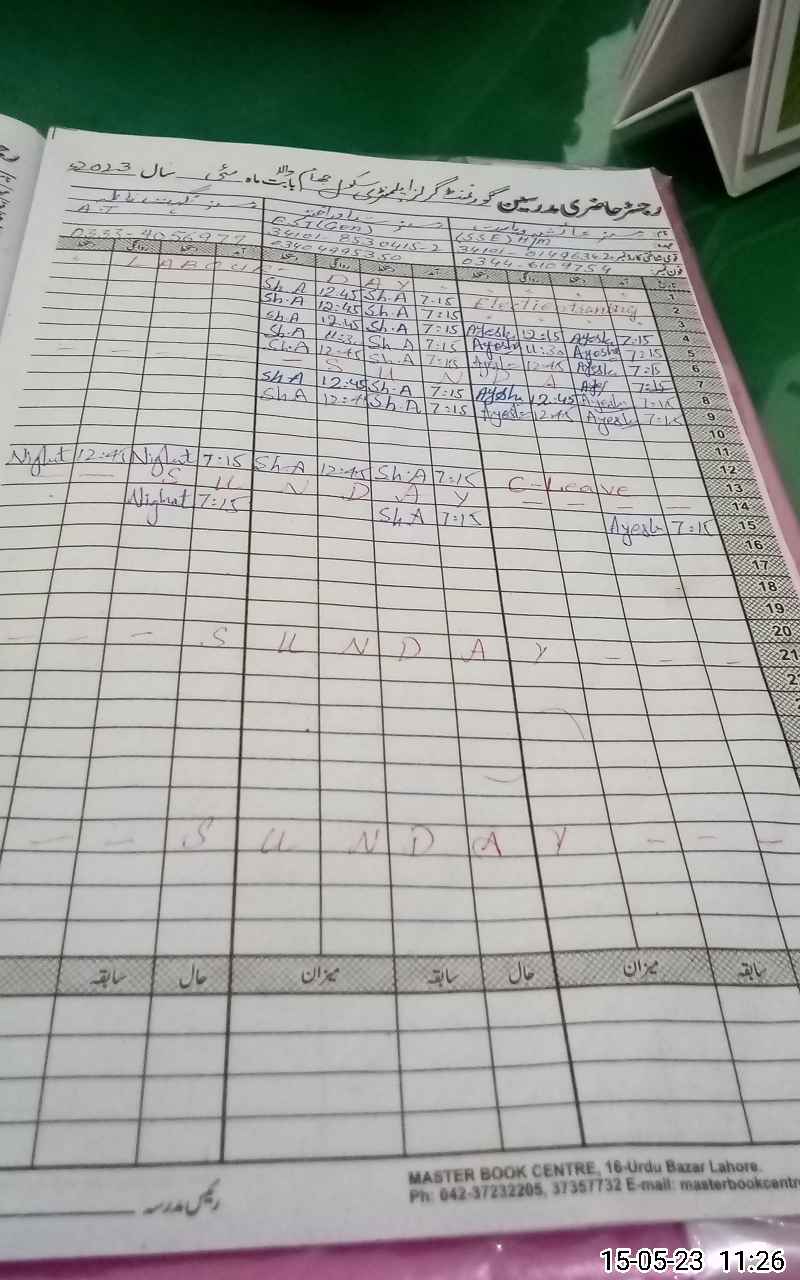 رجسٹر حاضری مدرسین گورنمنٹ گرلز ایلیمنٹری سکول بابت ماہ مئی سال 2023ء
A.T
EST(Gen)
(SSE) H/M
34101-8530415-2
0333-4056977
03404995350
0344 6109754
L A B O U R - D A Y
Sh.A 12:45 Sh.A 7:15
1
Sh.A 12:45 Sh.A 7:15
2
Sh.A 12:45 Sh.A 7:15
3
Sh.A Sh.A 7:15 Ayesha 12:15 Ayesha 7:15
4
Sh.A 12:45 Sh.A 7:15 Ayesha 11:30 Ayesha 7:15
5
12:45 7:15
6
S U N D A Y
7
Sh.A 12:45 Sh.A 7:15 Ayesha 12:45 Ayesha 7:15
8
Sh.A 12:45 Sh.A 7:15 Ayesha 12:45 Ayesha 7:15
9
10
11
12
Nighat 12:45 Nighat 7:15 Sh.A 12:45 Sh.A 7:15 C-Leave
13
— — S U N D A Y — — — —
14
Nighat 7:15 Sh.A 7:15 Ayesha 7:15
15
16
17
18
19
20
— — — S U N D A Y — — —
21
— — S U N D A Y — — —
سابقہ میزان حال سابقہ میزان حال سابقہ
رئیس مدرسہ
MASTER BOOK CENTRE, 16-Urdu Bazar Lahore.
Ph: 042-37232205, 37357732 E-mail: masterbookcentr
15-05-23 11:26